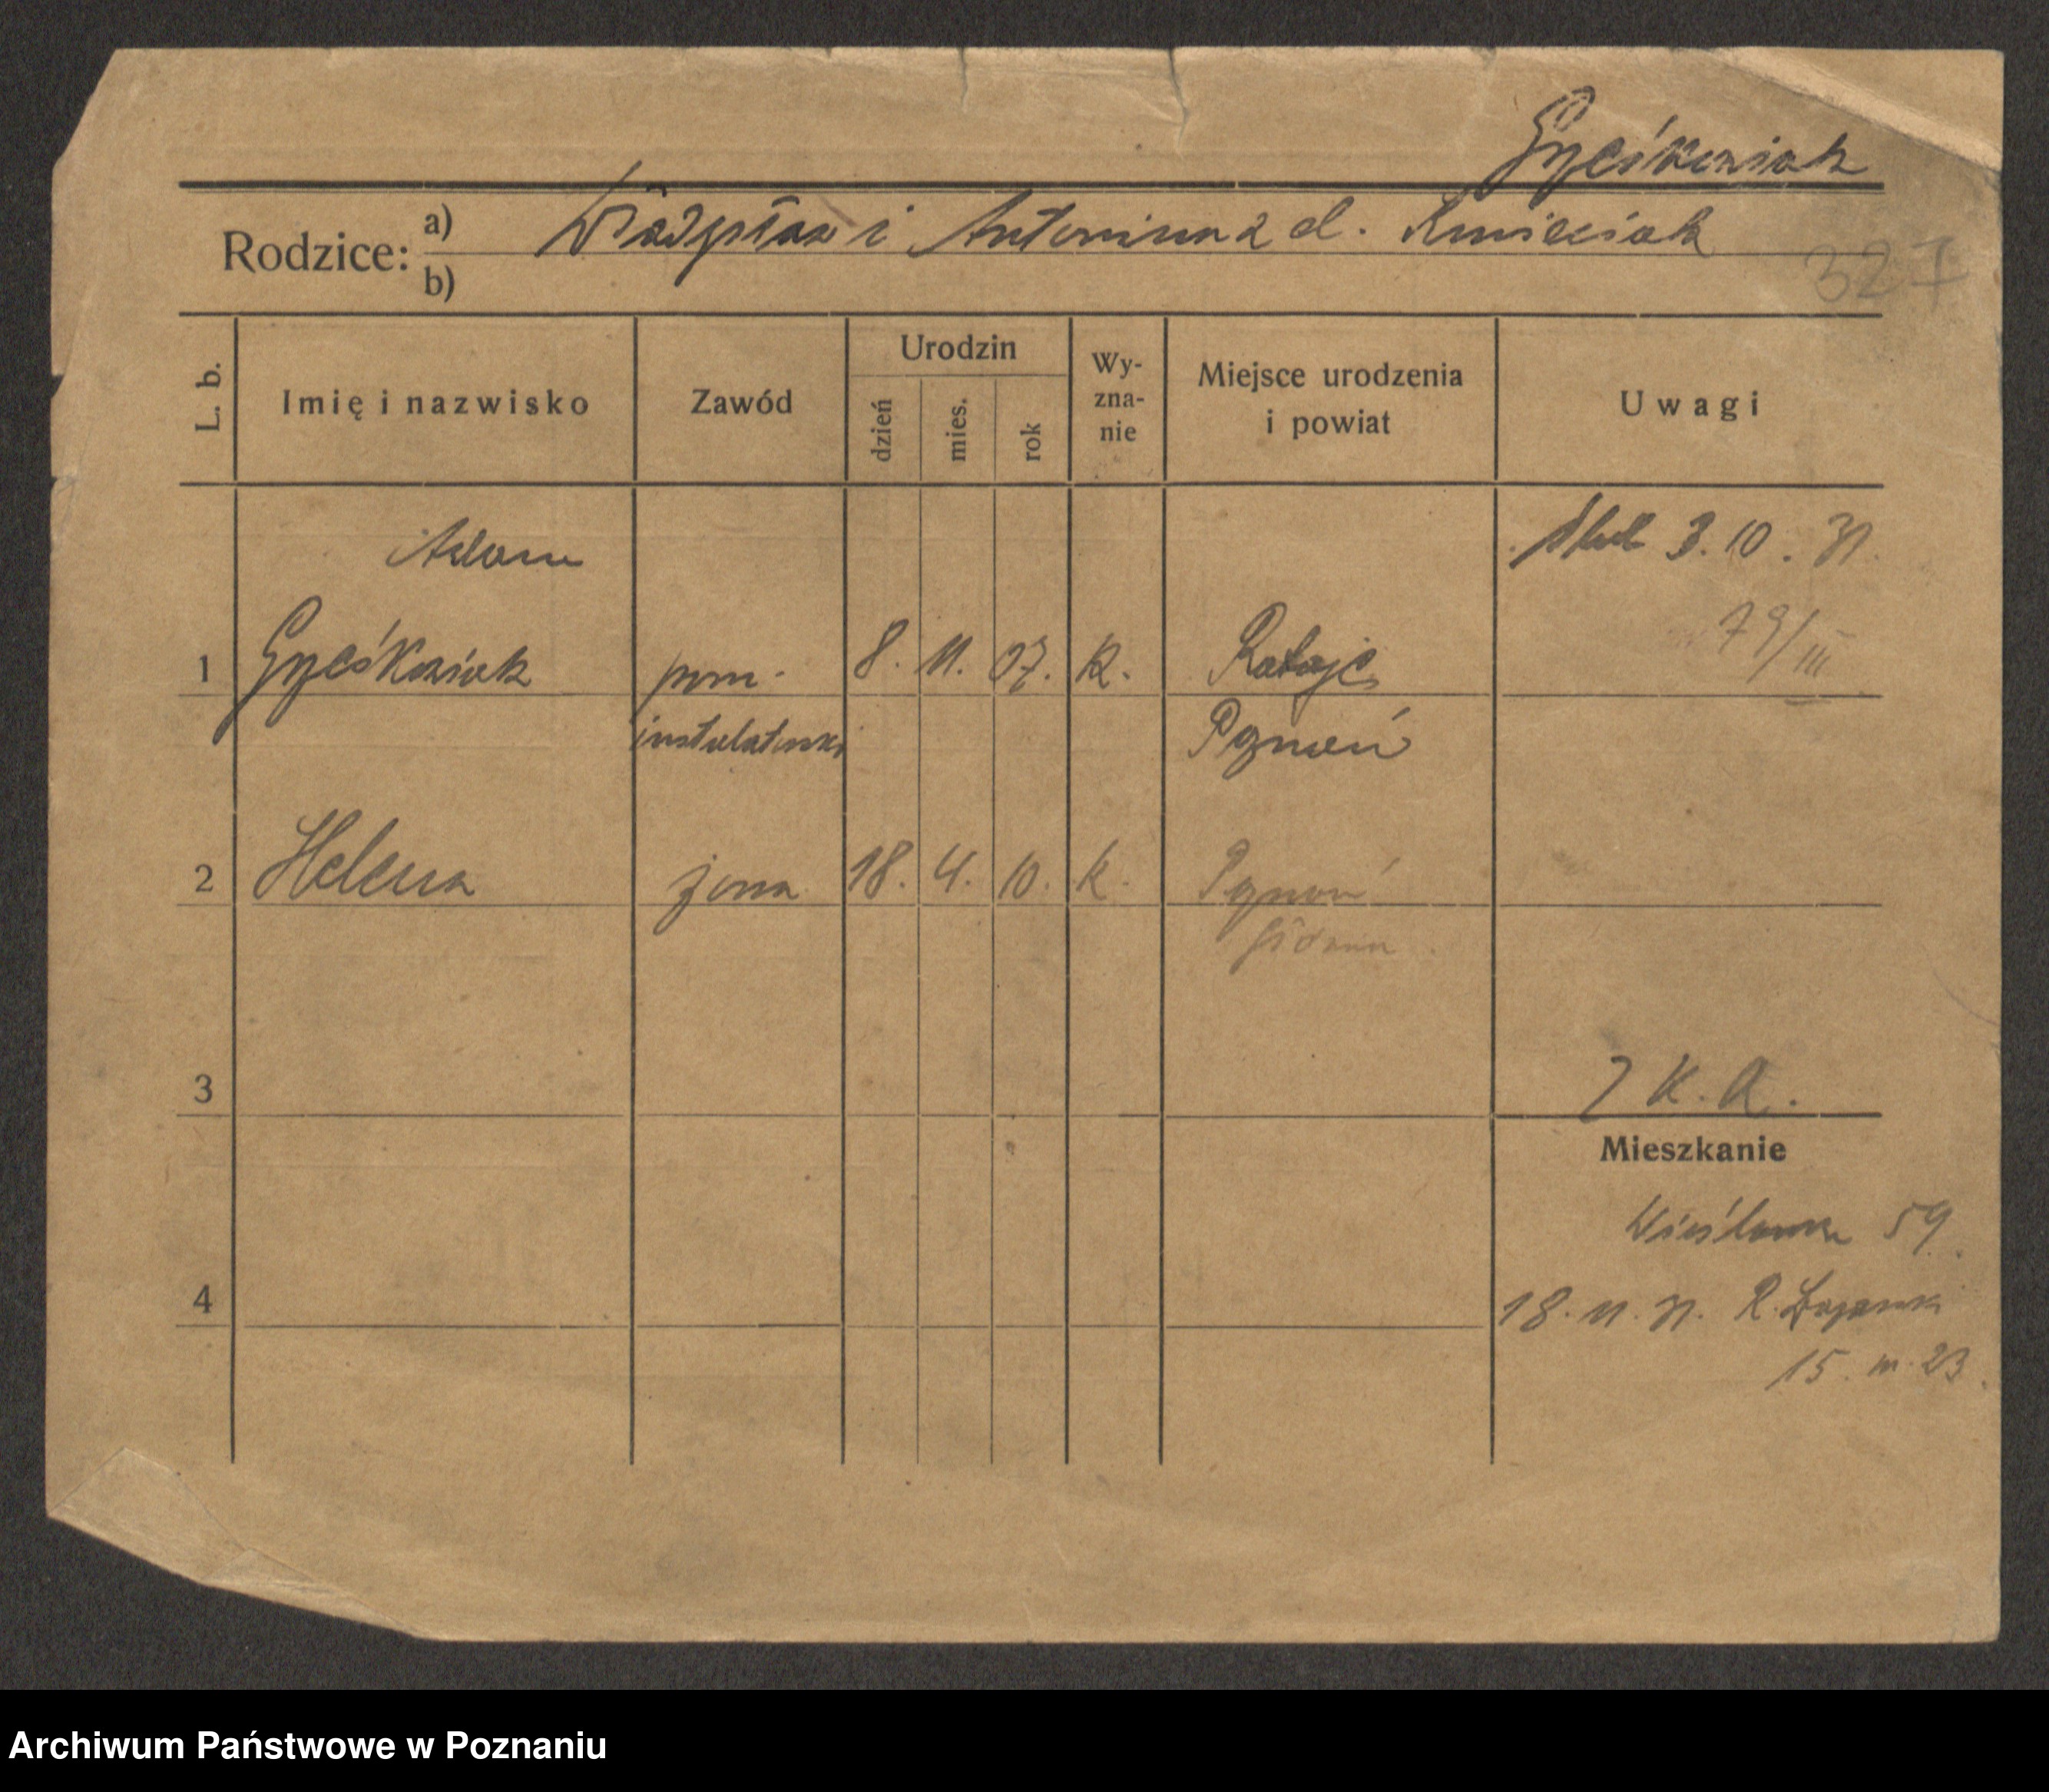 Grześkowiak
Rodzice: a) Władysław i Antonina z d. Kmieciak
b)
327
L. b.
Imię i nazwisko
Zawód
Urodzin
dzień
mies.
rok
Wy-
zna-
nie
Miejsce urodzenia
i powiat
Uwagi
Adam
ślub 3. 10. 31.
79/III
1 Grześkowiak pom. 8. 11. 07. k. Rataje
instalatorski Poznań
2 Helena żona 18. 4. 10. k. Poznań
3
K. A.
Mieszkanie
Wiślana 59.
4
18. 11. 31. R.
15 m. 23.
Archiwum Państwowe w Poznaniu